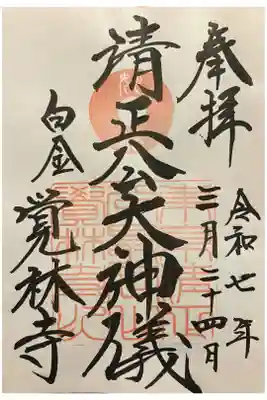 奉拝
令和七年
三月二十四日
清正公大神儀
白金
覺林寺